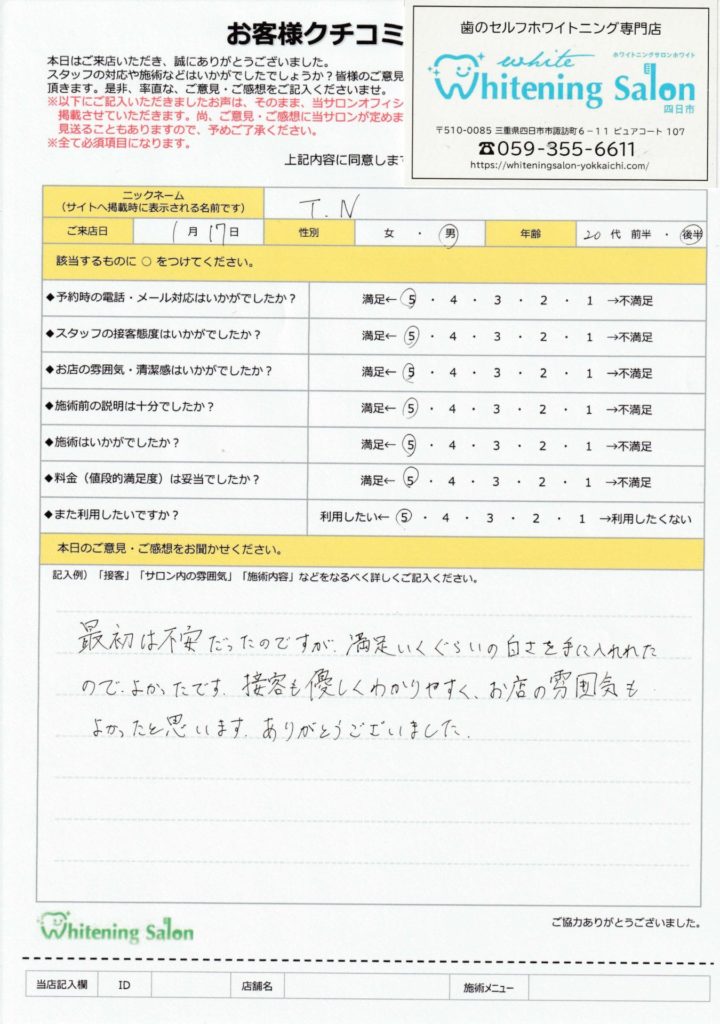 お客様クチコミ
本日はご来店いただき、誠にありがとうございました。
スタッフの対応や施術などはいかがでしたでしょうか？皆様のご意見
頂きます。是非、率直な、ご意見・ご感想をご記入くださいませ。
※以下にご記入いただきましたお声は、そのまま、当サロンオフィシ
掲載させていただきます。尚、ご意見・ご感想に当サロンが定めま
見送ることもありますので、予めご了承ください。
※全て必須項目になります。
上記内容に同意しま
歯のセルフホワイトニング専門店
white
ホワイトニングサロンホワイト
Whitening Salon
四日市
〒510-0085 三重県四日市市諏訪町6-11 ピュアコート 107
☎059-355-6611
https://whiteningsalon-yokkaichi.com/
ニックネーム
（サイトへ掲載時に表示される名前です） T.N
ご来店日 1月17日 性別 女 ・ 男 年齢 20代 前半 ・ 後半
該当するものに ○ をつけてください。
◆予約時の電話・メール対応はいかがでしたか？ 満足← 5 ・ 4 ・ 3 ・ 2 ・ 1 →不満足
◆スタッフの接客態度はいかがでしたか？ 満足← 5 ・ 4 ・ 3 ・ 2 ・ 1 →不満足
◆お店の雰囲気・清潔感はいかがでしたか？ 満足← 5 ・ 4 ・ 3 ・ 2 ・ 1 →不満足
◆施術前の説明は十分でしたか？ 満足← 5 ・ 4 ・ 3 ・ 2 ・ 1 →不満足
◆施術はいかがでしたか？ 満足← 5 ・ 4 ・ 3 ・ 2 ・ 1 →不満足
◆料金（値段的満足度）は妥当でしたか？ 満足← 5 ・ 4 ・ 3 ・ 2 ・ 1 →不満足
◆また利用したいですか？ 利用したい← 5 ・ 4 ・ 3 ・ 2 ・ 1 →利用したくない
本日のご意見・ご感想をお聞かせください。
記入例）「接客」「サロン内の雰囲気」「施術内容」などをなるべく詳しくご記入ください。
最初は不安だったのですが、満足いくぐらいの白さを手に入れれた
ので、よかったです。接客も優しくわかりやすく、お店の雰囲気も
よかったと思います。ありがとうございました。
Whitening Salon
ご協力ありがとうございました。
当店記入欄 ID 店舗名 施術メニュー